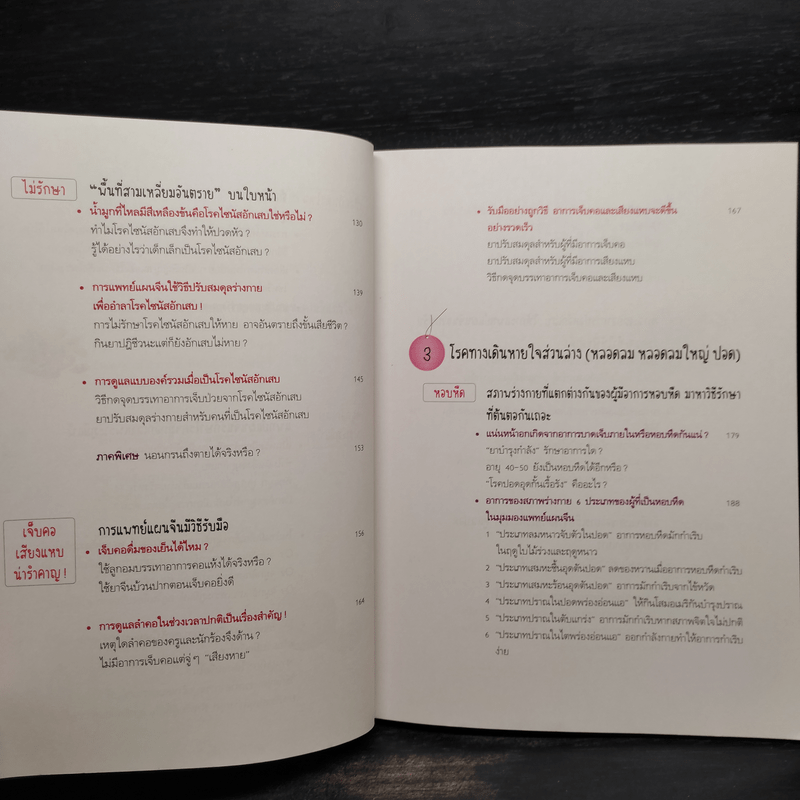 ไม่รักษา
"พื้นที่สามเหลี่ยมอันตราย" บนใบหน้า
• น้ำมูกที่ไหลมีสีเหลืองข้นคือโรคไซนัสอักเสบใช่หรือไม่? 130
ทำไมโรคไซนัสอักเสบจึงทำให้ปวดหัว?
รู้ได้อย่างไรว่าเด็กเล็กเป็นโรคไซนัสอักเสบ?
• การแพทย์แผนจีนใช้วิธีปรับสมดุลร่างกาย 139
เพื่ออำลาโรคไซนัสอักเสบ!
การไม่รักษาโรคไซนัสอักเสบให้หาย อาจอันตรายถึงขั้นเสียชีวิต?
กินยาปฏิชีวนะแต่ก็ยังอักเสบไม่หาย?
• การดูแลแบบองค์รวมเมื่อเป็นโรคไซนัสอักเสบ 145
วิธีกดจุดบรรเทาอาการเจ็บป่วยจากโรคไซนัสอักเสบ
ยาปรับสมดุลร่างกายสำหรับคนที่เป็นโรคไซนัสอักเสบ
ภาคพิเศษ นอนกรนถึงตายได้จริงหรือ? 153
เจ็บคอ
เสียงแหบ
น่ารำคาญ!
การแพทย์แผนจีนมีวิธีรับมือ
• เจ็บคอดื่มของเย็นได้ไหม? 156
ใช้ลูกอมบรรเทาอาการคอแห้งได้จริงหรือ?
ใช้ยาจีนบ้วนปากตอนเจ็บคอยิ่งดี
• การดูแลลำคอในช่วงเวลาปกติเป็นเรื่องสำคัญ! 164
เหตุใดลำคอของครูและนักร้องจึงด้าน?
ไม่มีอาการเจ็บคอแต่จู่ๆ "เสียงหาย"
• รับมืออย่างถูกวิธี อาการเจ็บคอและเสียงแหบจะดีขึ้น 167
อย่างรวดเร็ว
ยาปรับสมดุลสำหรับผู้ที่มีอาการเจ็บคอ
ยาปรับสมดุลสำหรับผู้ที่มีอาการเสียงแหบ
วิธีกดจุดบรรเทาอาการเจ็บคอและเสียงแหบ
3 โรคทางเดินหายใจส่วนล่าง (หลอดลม หลอดลมใหญ่ ปอด)
หอบหืด
สภาพร่างกายที่แตกต่างกันของผู้มีอาการหอบหืด มาหาวิธีรักษา
ที่ต้นตอกันเถอะ
• แน่นหน้าอกเกิดจากอาการบาดเจ็บภายในหรือหอบหืดกันแน่? 179
"ยาบำรุงกำลัง" รักษาอาการใด?
อายุ 40-50 ยังเป็นหอบหืดได้อีกหรือ?
"โรคปอดอุดกั้นเรื้อรัง" คืออะไร?
• อาการของสภาพร่างกาย 6 ประเภทของผู้ที่เป็นหอบหืด 188
ในมุมมองแพทย์แผนจีน
1 "ประเภทลมหนาวจับตัวในปอด" อาการหอบหืดมักกำเริบ
ในฤดูใบไม้ร่วงและฤดูหนาว
2 "ประเภทเสมหะชื้นอุดตันปอด" ลดของหวานเมื่ออาการหอบหืดกำเริบ
3 "ประเภทเสมหะร้อนอุดตันปอด" อาการมักกำเริบจากไข้หวัด
4 "ประเภทปราณในปอดพร่องอ่อนแอ" ให้กินโสมอเมริกันบำรุงปราณ
5 "ประเภทปราณในตับแกร่ง" อาการมักกำเริบหากสภาพจิตใจไม่ปกติ
6 "ประเภทปราณในไตพร่องอ่อนแอ" ออกกำลังกายทำให้อาการกำเริบ
ง่าย